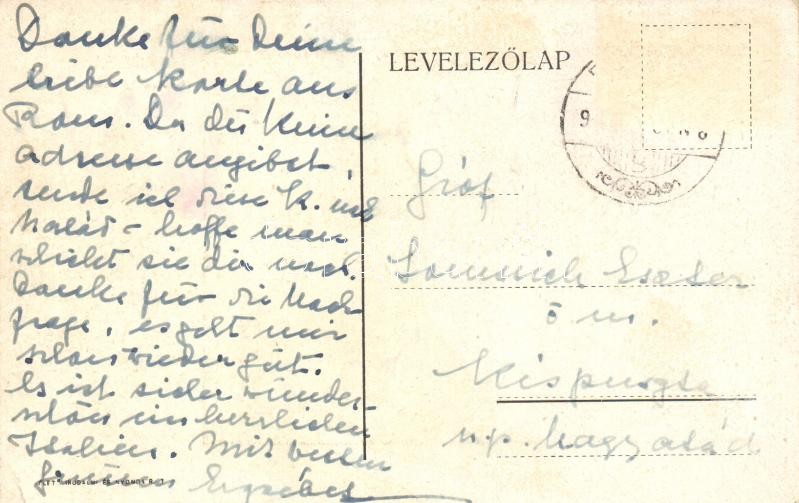 Danke für Deine
liebe Karte aus
Rom. Da du keine
adresse angibst,
sende ich diese K. nach
hoffe man
schickt sie dir nach.
Danke für die Nach-
frage, es geht mir
schon wieder gut.
Es ist sicher wunder-
schön im herrlichen
Italien. Mit besten
Erzsébet
LEVELEZŐLAP
9
Gróf
Somssich Eszter
ő m.
Kispuszta
u.p. Nagyatád